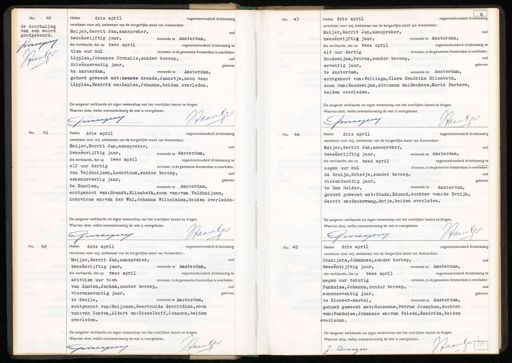 No. 40
de doorhaling
van een woord
goedgekeurd.
Heden drie april negentienhonderd drieënzestig
verscheen voor mij, ambtenaar van de burgerlijke stand van Amsterdam:
Meijer, Gerrit Jan, aanspreker, oud
tweeënvijftig jaar, wonende te Amsterdam,
die verklaarde, dat op twee april negentienhonderd drieënzestig
tien uur nul minuten, in de gemeente Amsterdam is overleden:
Lipplaa, Johannes Cornelis, zonder beroep, oud
jaar, geboren
te Amsterdam, wonende te Amsterdam,
gehuwd geweest met
Lipplaa, Hendrik en: Johanna, beiden overleden.
De aangever verklaarde uit eigen wetenschap van het overlijden kennis te dragen.
Waarvan akte, welke overeenkomstig de wet is voorgelezen.
No. 41
Heden drie april negentienhonderd drieënzestig
verscheen voor mij, ambtenaar van de burgerlijke stand van Amsterdam:
Meijer, Gerrit Jan, aanspreker, oud
tweeënvijftig jaar, wonende te Amsterdam,
die verklaarde, dat op twee april negentienhonderd drieënzestig
elf uur dertig minuten, in de gemeente Amsterdam is overleden:
van Veldhuijzen, Lodovicus, zonder beroep, oud
jaar, geboren
te Haarlem, wonende te Amsterdam,
echtgenoot van: Brandt, Elisabeth, zoon van: van Veldhuijzen,
Lodovicus en: van der Wal, Johanna Wilhelmina, beiden overleden
De aangever verklaarde uit eigen wetenschap van het overlijden kennis te dragen.
Waarvan akte, welke overeenkomstig de wet is voorgelezen.
No. 42
Heden drie april negentienhonderd drieënzestig
verscheen voor mij, ambtenaar van de burgerlijke stand van Amsterdam:
Meijer, Gerrit Jan, aanspreker, oud
tweeënvijftig jaar, wonende te Amsterdam,
die verklaarde, dat op twee april negentienhonderd drieënzestig
uur tien minuten, in de gemeente Amsterdam is overleden:
van Santen, Jochem, zonder beroep, oud
jaar, geboren
te Zwolle, wonende te Amsterdam,
echtgenoot van: Geertruida Gerritdina, zoon
van: van Santen, Albert en: Disselhoff, Johanna, beiden
overleden.
De aangever verklaarde uit eigen wetenschap van het overlijden kennis te dragen.
Waarvan akte, welke overeenkomstig de wet is voorgelezen.
No. 43
Heden drie april negentienhonderd drieënzestig
verscheen voor mij, ambtenaar van de burgerlijke stand van Amsterdam:
Meijer, Gerrit Jan, aanspreker, oud
tweeënvijftig jaar, wonende te Amsterdam,
die verklaarde, dat op twee april negentienhonderd drieënzestig
elf uur dertig minuten, in de gemeente Amsterdam is overleden:
Boudewijns, Petrus, zonder beroep, oud
zeventig jaar, geboren
te Amsterdam, wonende te Amsterdam,
echtgenoot van: Pellinga, Clara Hendrika Elisabeth,
zoon van: Boudewijns, Adrianus en: Beekers, Maria Barbara,
beiden overleden.
De aangever verklaarde uit eigen wetenschap van het overlijden kennis te dragen.
Waarvan akte, welke overeenkomstig de wet is voorgelezen.
No. 44
Heden drie april negentienhonderd drieënzestig
verscheen voor mij, ambtenaar van de burgerlijke stand van Amsterdam:
Meijer, Gerrit Jan, aanspreker, oud
tweeënvijftig jaar, wonende te Amsterdam,
die verklaarde, dat op twee april negentienhonderd drieënzestig
negen uur nul minuten, in de gemeente Amsterdam is overleden:
de Bruijn, Grietje, zonder beroep, oud
vierentachtig jaar, geboren
te Den Helder, wonende te Amsterdam,
gehuwd geweest met: Stada, Eduard, dochter van: de Bruijn,
Gerrit en: Antje, beiden overleden.
De aangever verklaarde uit eigen wetenschap van het overlijden kennis te dragen.
Waarvan akte, welke overeenkomstig de wet is voorgelezen.
No. 45
Heden drie april negentienhonderd drieënzestig
verscheen voor mij, ambtenaar van de burgerlijke stand van Amsterdam:
Johannes, zonder beroep, oud
jaar, wonende te Amsterdam,
die verklaarde, dat op twee april negentienhonderd drieënzestig
negen uur twintig minuten, in de gemeente Amsterdam is overleden:
Johanna, zonder beroep, oud
jaar, geboren
te Nieuwer-Amstel, wonende te Amsterdam,
gehuwd geweest met: Goossens, Petrus Josephus, dochter
van: Johannes en: van Velzen, Hendrika, beiden
overleden.
De aangever verklaarde uit eigen wetenschap van het overlijden kennis te dragen.
Waarvan akte, welke overeenkomstig de wet is voorgelezen.